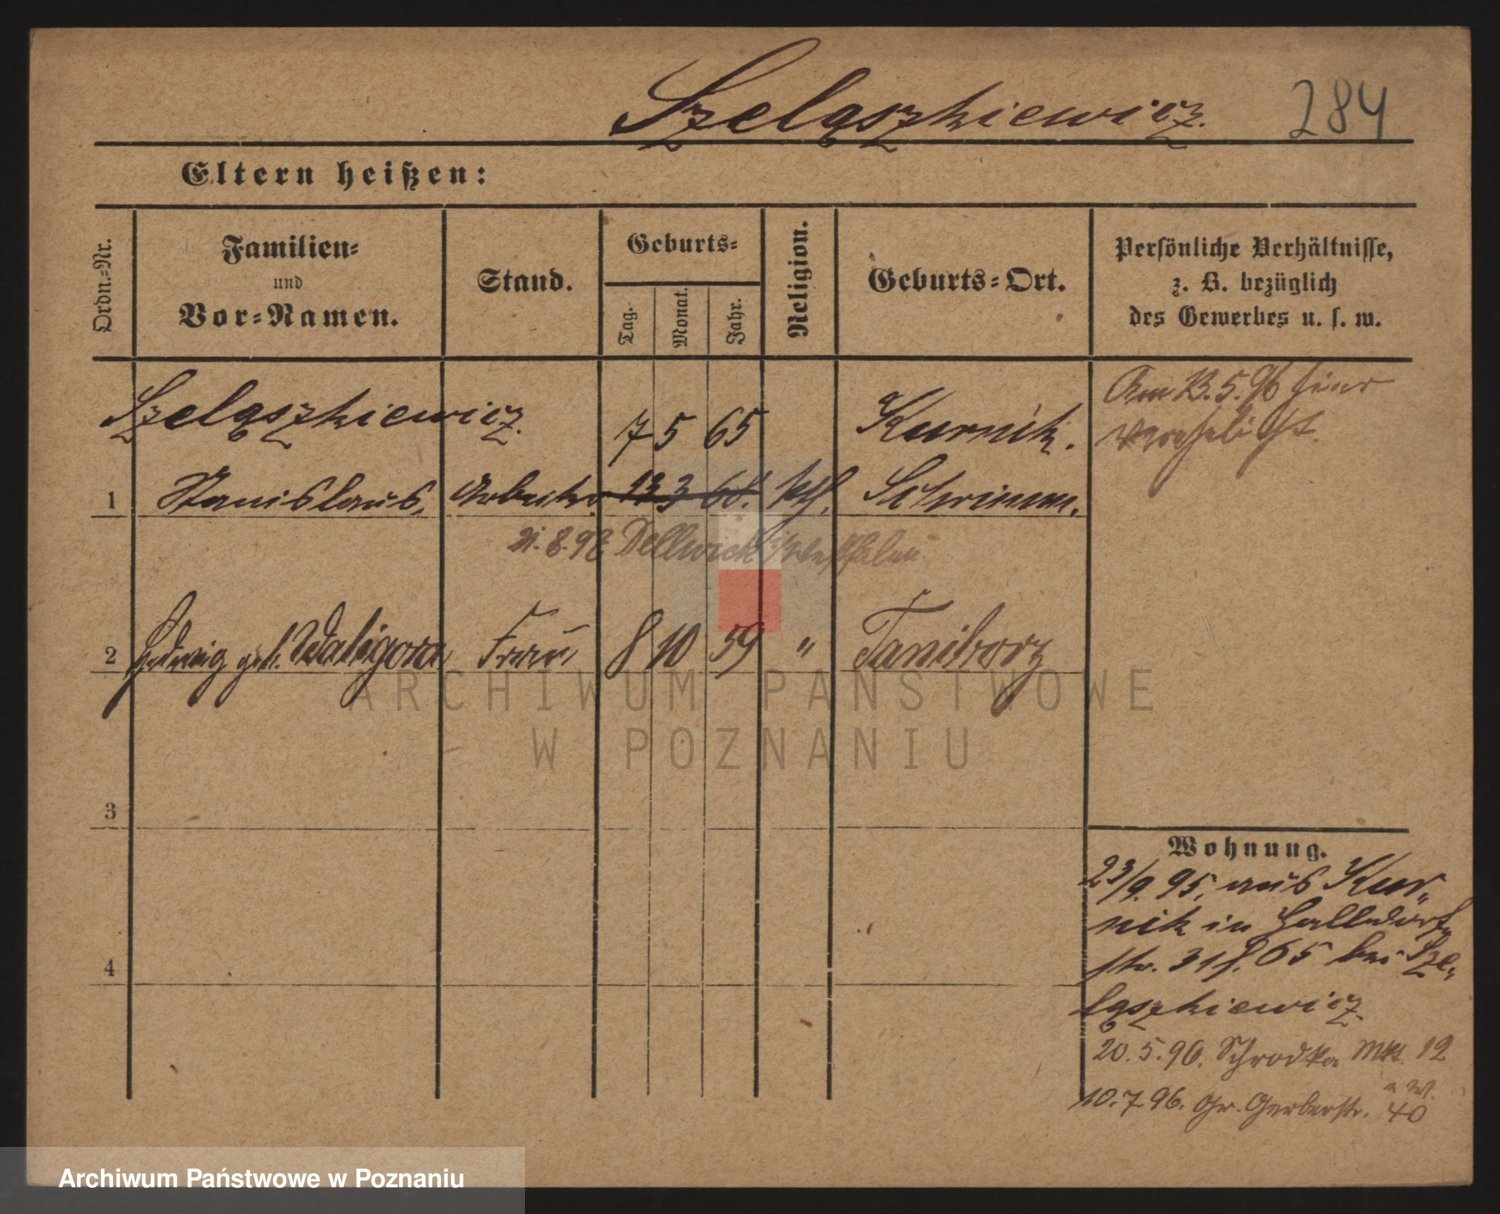 Szelągszkiewicz. 284
Eltern heißen:
Ordn.-Nr.
Familien-
und
Vor-Namen.
Stand.
Geburts-
Tag.
Monat.
Jahr.
Religion.
Geburts-Ort.
Persönliche Verhältnisse,
z. B. bezüglich
des Gewerbes u. s. w.
Szelągszkiewicz. 7 5 65 Kurnik.
1 Stanislaus, Arbeiter 13 3 68. kth. Schrimm.
Am 23.5.96 hier
verehelicht.
21.8.98 Dellwick Westfalen
2 Hedwig geb. Waligora Frau 8 10 59 " Taniborz
3
4
Wohnung.
23/9. 95, aus Kur-
nik in Halldorf-
str. 31 b. 65 bei Sze-
lągszkiewicz.
20.5.96. Schrodka Mkt. 12
10.7.96. Gr. Gerberstr. 40
ARCHIWUM PAŃSTWOWE
W POZNANIU
Archiwum Państwowe w Poznaniu